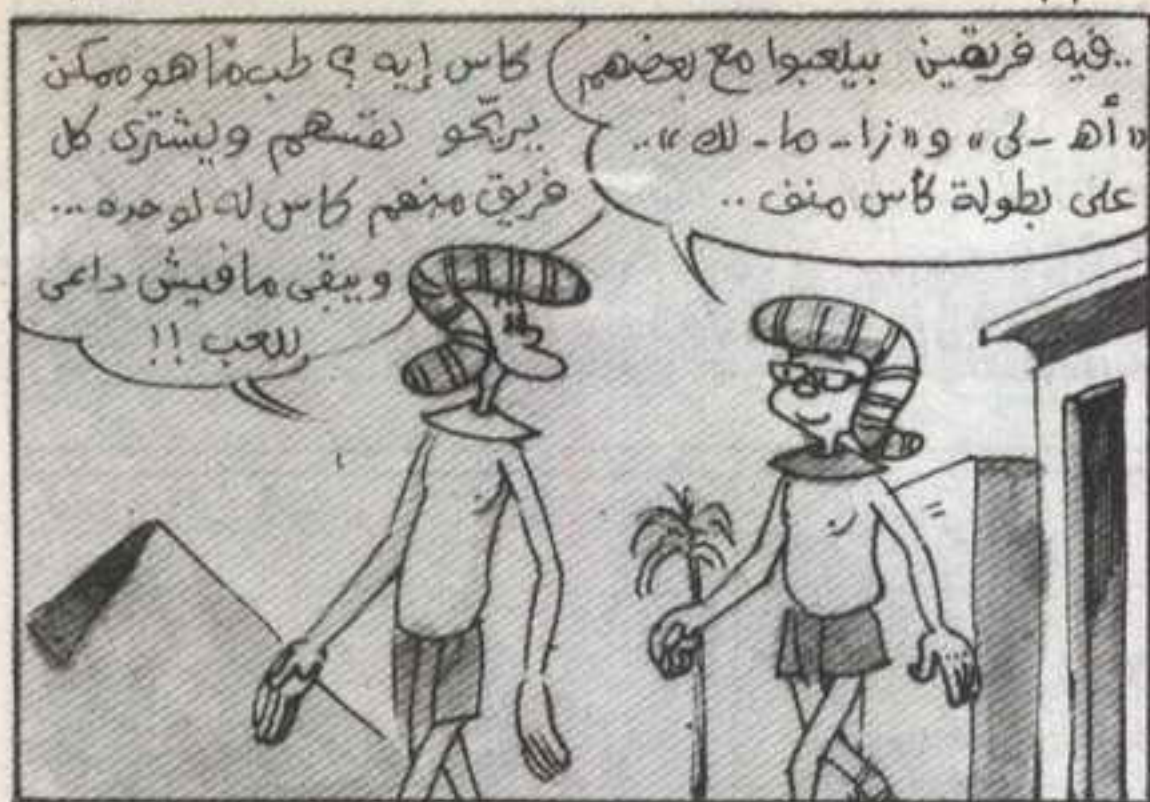 ..فيه فريقين بيلعبوا مع بعضهم
«أهـ - لى» و «زا - ما - لك»..
على بطولة كأس منف ..
كاس إيه ؟ طب ما هو ممكن
يريّحو نفسهم ويشترى كل
فريق منهم كاس له لوحده ...
ويبقى مافيش داعى
للعب !!